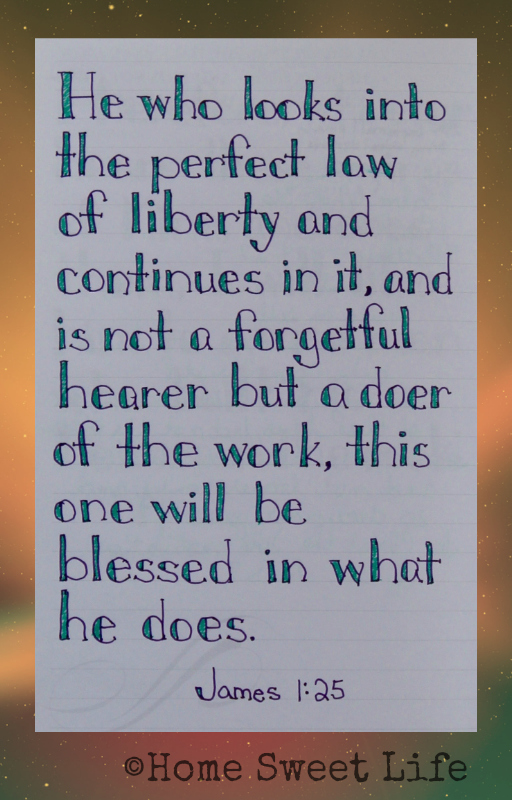 He who looks into
the perfect law
of liberty and
continues in it, and
is not a forgetful
hearer but a doer
of the work, this
one will be
blessed in what
he does.
James 1:25
©Home Sweet Life